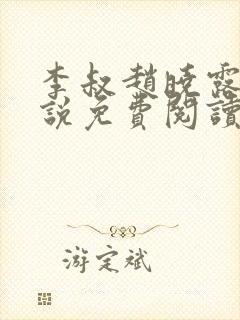 李叔趙曉露
說免費閱讀
游定斌